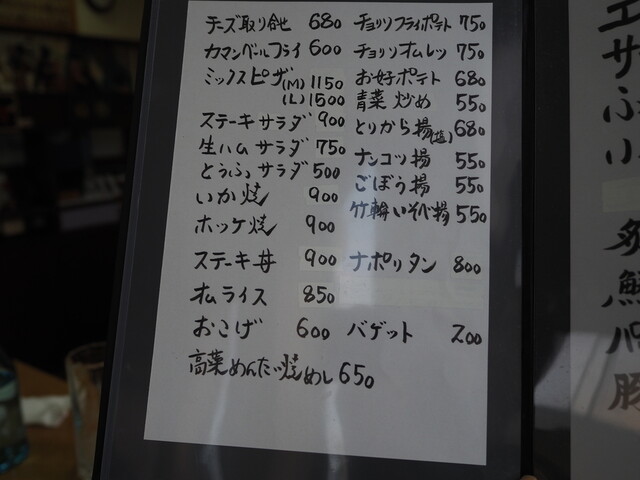 チーズ取り合せ 680
カマンベールフライ 600
ミックスピザ(M) 1150
(L) 1500
ステーキサラダ 900
生ハムサラダ 750
とうふサラダ 500
いか焼 900
ホッケ焼 900
ステーキ丼 900
オムライス 850
おこげ 600
高菜めんたい焼めし 650
チョリソフライポテト 750
チョリソオムレツ 750
お好ポテト 680
青菜炒め 550
とりから揚(塩) 680
ナンコツ揚 550
ごぼう揚 550
竹輪いそべ揚 550
ナポリタン 800
バゲット 200